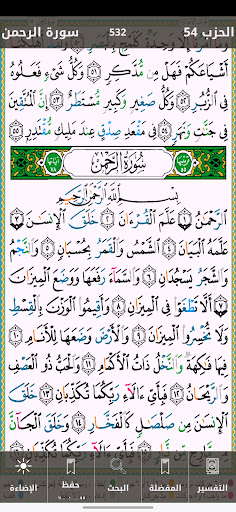 الحزب 54 532 سورة الرحمن
أَشْيَاعَكُمْ فَهَلْ مِن مُّدَّكِرٍ ٥١ وَكُلُّ شَيْءٍ فَعَلُوهُ
فِي الزُّبُرِ ٥٢ وَكُلُّ صَغِيرٍ وَكَبِيرٍ مُّسْتَطَرٌ ٥٣ إِنَّ الْمُتَّقِينَ
فِي جَنَّاتٍ وَنَهَرٍ ٥٤ فِي مَقْعَدِ صِدْقٍ عِندَ مَلِيكٍ مُّقْتَدِرٍ ٥٥
سُورَةُ الرَّحْمَٰن
بِسْمِ اللَّهِ الرَّحْمَٰنِ الرَّحِيمِ
الرَّحْمَٰنُ ١ عَلَّمَ الْقُرْءَانَ ٢ خَلَقَ الْإِنسَٰنَ ٣
عَلَّمَهُ الْبَيَانَ ٤ الشَّمْسُ وَالْقَمَرُ بِحُسْبَانٍ ٥ وَالنَّجْمُ
وَالشَّجَرُ يَسْجُدَانِ ٦ وَالسَّمَاءَ رَفَعَهَا وَوَضَعَ الْمِيزَانَ
٧ أَلَّا تَطْغَوْا فِي الْمِيزَانِ ٨ وَأَقِيمُوا الْوَزْنَ بِالْقِسْطِ
وَلَا تُخْسِرُوا الْمِيزَانَ ٩ وَالْأَرْضَ وَضَعَهَا لِلْأَنَامِ ١٠
فِيهَا فَٰكِهَةٌ وَالنَّخْلُ ذَاتُ الْأَكْمَامِ ١١ وَالْحَبُّ ذُو الْعَصْفِ
وَالرَّيْحَانُ ١٢ فَبِأَيِّ ءَالَاءِ رَبِّكُمَا تُكَذِّبَانِ ١٣ خَلَقَ
الْإِنسَٰنَ مِن صَلْصَٰلٍ كَالْفَخَّارِ ١٤ وَخَلَقَ الْجَانَّ
التفسير المفضلة البحث حفظ الإضاءة